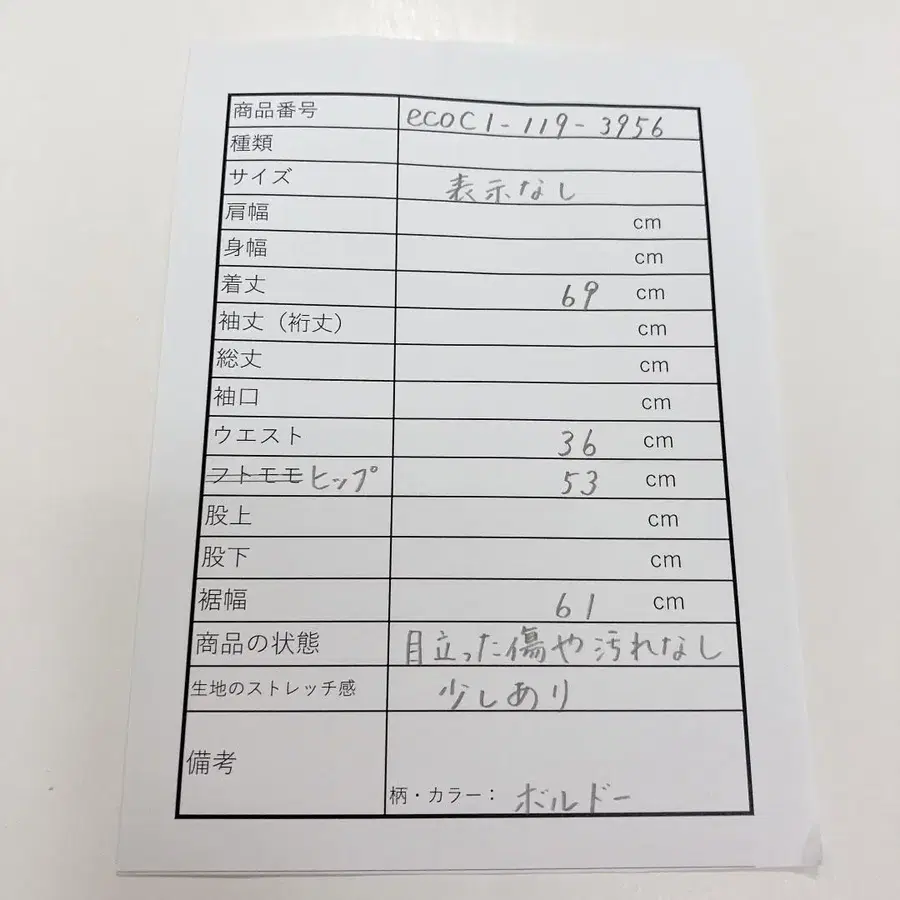 商品番号 ecoC1-119-3956
種類
サイズ 表示なし
肩幅 cm
身幅 cm
着丈 69 cm
袖丈（裄丈） cm
総丈 cm
袖口 cm
ウエスト 36 cm
フトモモ ヒップ 53 cm
股上 cm
股下 cm
裾幅 61 cm
商品の状態 目立った傷や汚れなし
生地のストレッチ感 少しあり
備考
柄・カラー： ボルドー